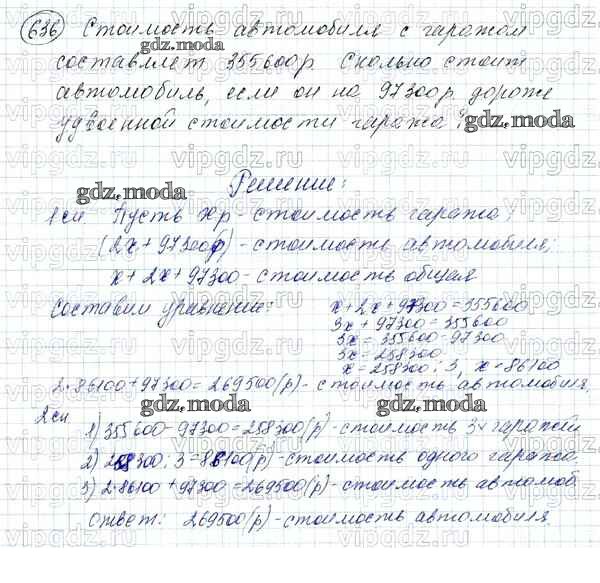 636 Стоимость автомобиля с гаражом
составляет 355600р Сколько стоит
автомобиль, если он на 97300р дороже
удвоенной стоимости гаража?
Решение:
1 сп Пусть Xр - стоимость гаража;
(2x + 97300р) - стоимость автомобиля;
x + 2x + 97300 - стоимость общая
Составим уравнение:
x + 2x + 97300 = 355600
3x + 97300 = 355600
3x = 355600 - 97300
3x = 258300
x = 258300 : 3, x = 86100
2·86100 + 97300 = 269500(р) - стоимость автомобиля.
2 сп
1) 355600 - 97300 = 258300(р) - стоимость 3х гаражей
2) 258300 : 3 = 86100(р) - стоимость одного гаража.
3) 2·86100 + 97300 = 269500(р) - стоимость автомоб
Ответ: 269500(р) - стоимость автомобиля.
gdz.moda
gdz.moda
gdz.moda
gdz.moda
gdz.moda
gdz.moda
vipgdz.ru